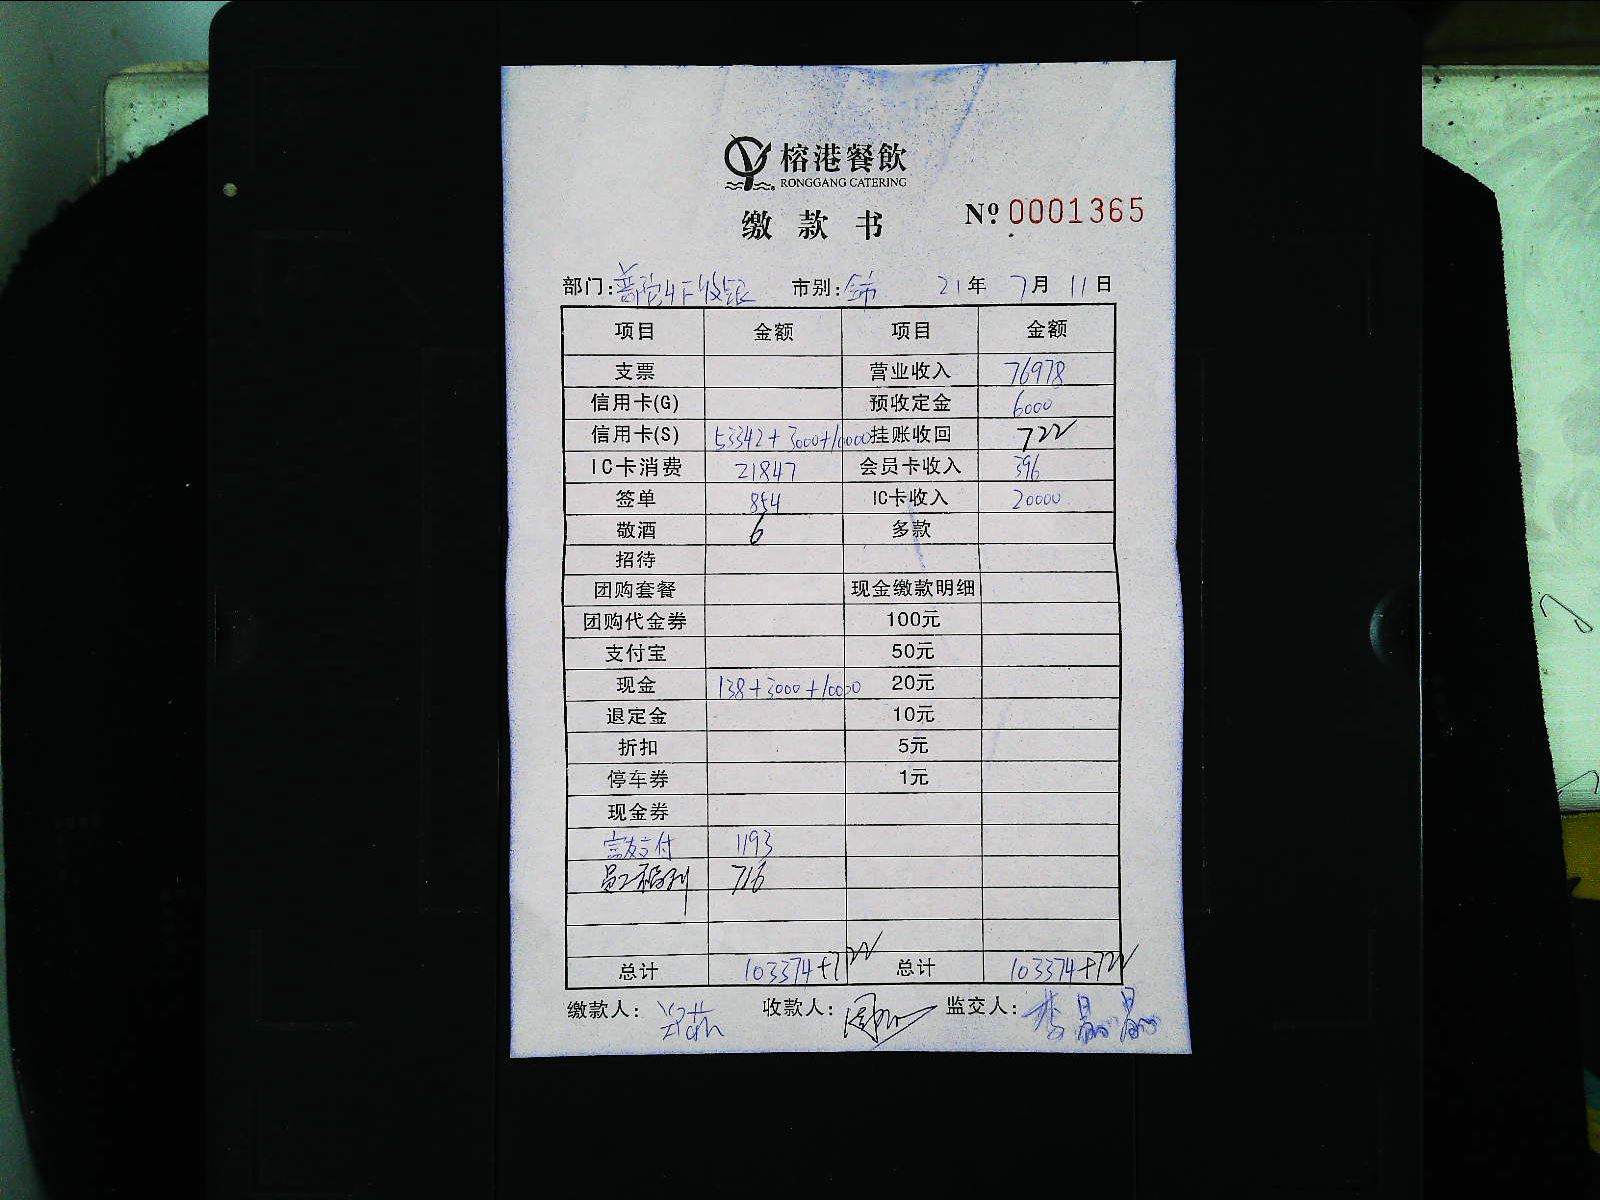 榕港餐飲
RONGGANG CATERING
缴款书 Nº 0001365
部门: 普陀4F收银 市别: 全市 21年 7月 11日
项目 金额 项目 金额
支票 营业收入 76978
信用卡(G) 预收定金 6000
信用卡(S) 53342+3000+10000 挂账收回 722
IC卡消费 21847 会员卡收入 396
签单 854 IC卡收入 20000
敬酒 6 多款
招待
团购套餐 现金缴款明细
团购代金券 100元
支付宝 50元
现金 138+3000+10000 20元
退定金 10元
折扣 5元
停车券 1元
现金券
支付 1193
员工福利 716
总计 103374+722 总计 103374+722
缴款人: 收款人: 监交人: 李晶晶